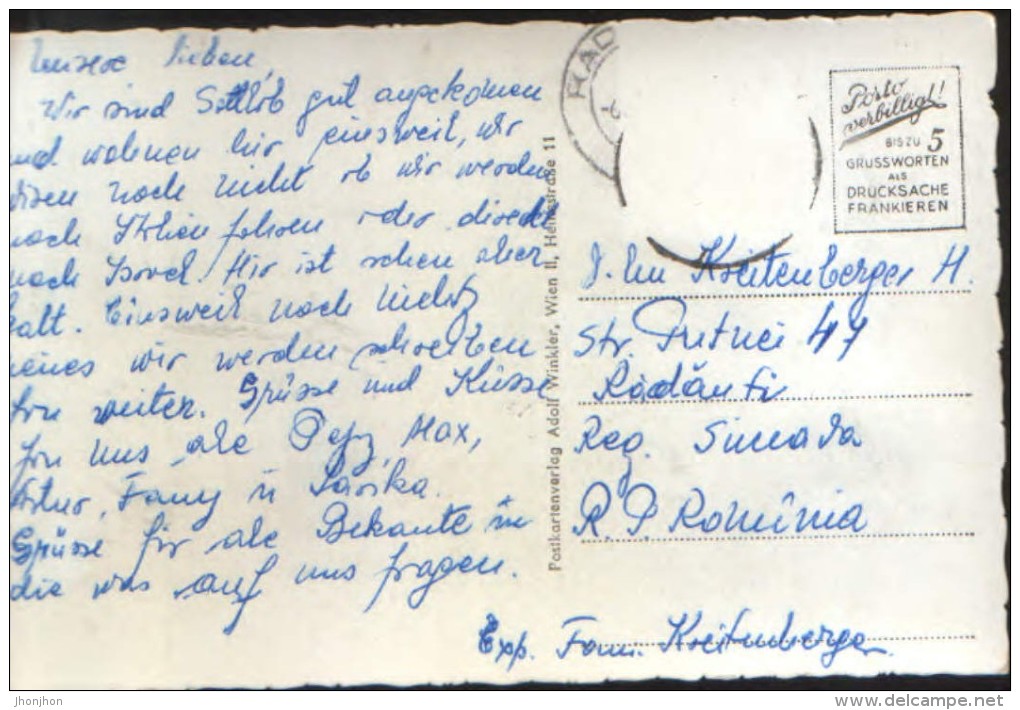 Unsere lieben,
Wir sind Gottlob gut angekomen
und wohnen hir einsweil, wir
wisen noch nicht ob wir werden
nach Italien fahren oder direckt
nach Isroel. Hir ist schon aber
kalt. Einsweil noch nichts
neues wir werden schreiben
fon weiter. Grüsse und Küsse
fon uns ale Pepy, Max,
Artur, Fany u Sarika.
Grüsse für ale Bekante
die was auf uns fragen.
Postkartenverlag Adolf Winkler, Wien II, Heinestraße 11
RAD
Porto
verbilligt!
BIS ZU 5
GRUSSWORTEN
ALS
DRUCKSACHE
FRANKIEREN
Kreitenberger H.
Str. Putnei 47
Rădăuti
Reg. Suceava
R. P. Romînia
Exp. Fam. Kreitenberger
jhonjhon
www.delcampe.net